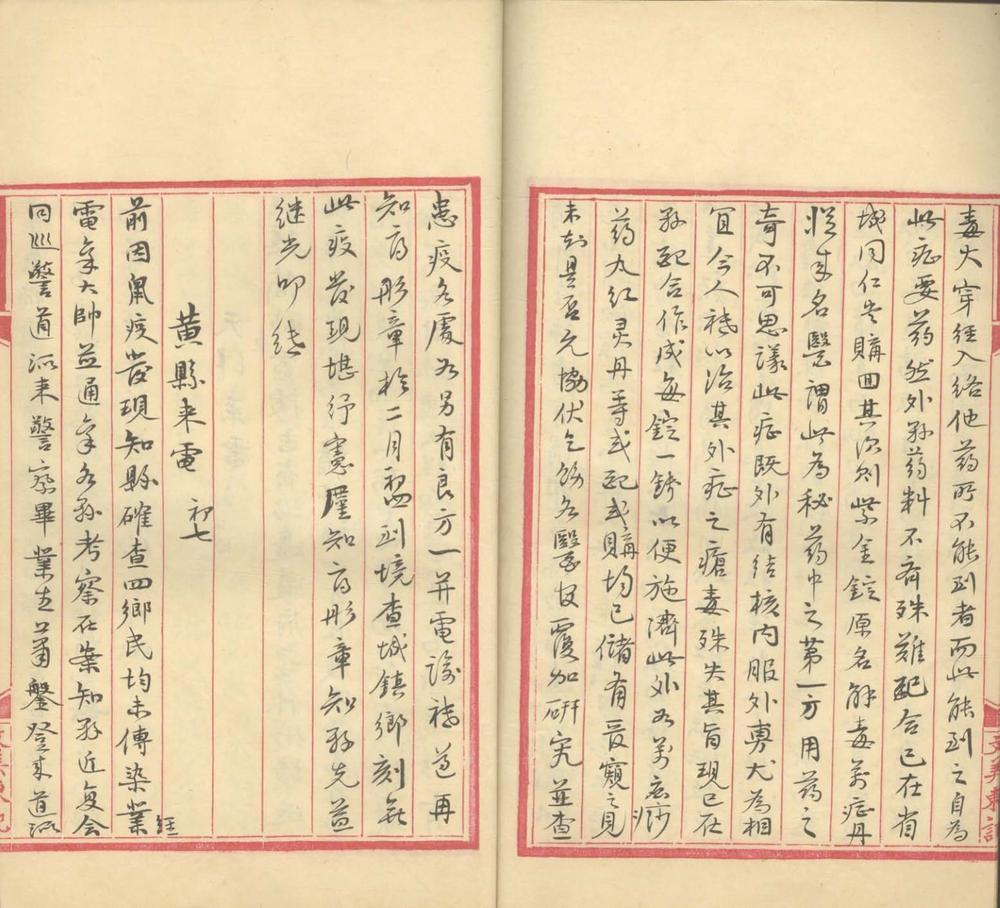 毒大穿經入絡他葯所不能到者而此能到之自為
此症要葯然外縣葯料不齊殊難配合已在省
城同仁堂購回其次則紫金錠原名解毒萬症丹
從来名醫謂此為秘葯中之第一方用葯之
奇不可思議此症既外有结核内服外敷尤為相
宜今人祗以治其外症之瘡毒殊失其旨現已在
縣配合作成每錠一錢以便施濟此外如萬應痧
葯九红灵丹等或配或購均已儲有管窺之見
未知是否允協伏乞飭各醫官覆加研究並查
患疫各處如另有良方一并電諭祗遵再
知府彤章於二月初四到境查城鎮鄉刻無
此疫發現堪紓憲廑知府彤章知縣先益
继光叩絰
黄縣来電 初七
前因鼠疫發現知縣確查四鄉民均未傳染業經
電禀大帥並通禀各縣考察在案知縣近复会
同巡警道派来警察畢業生蕭盤登来道派